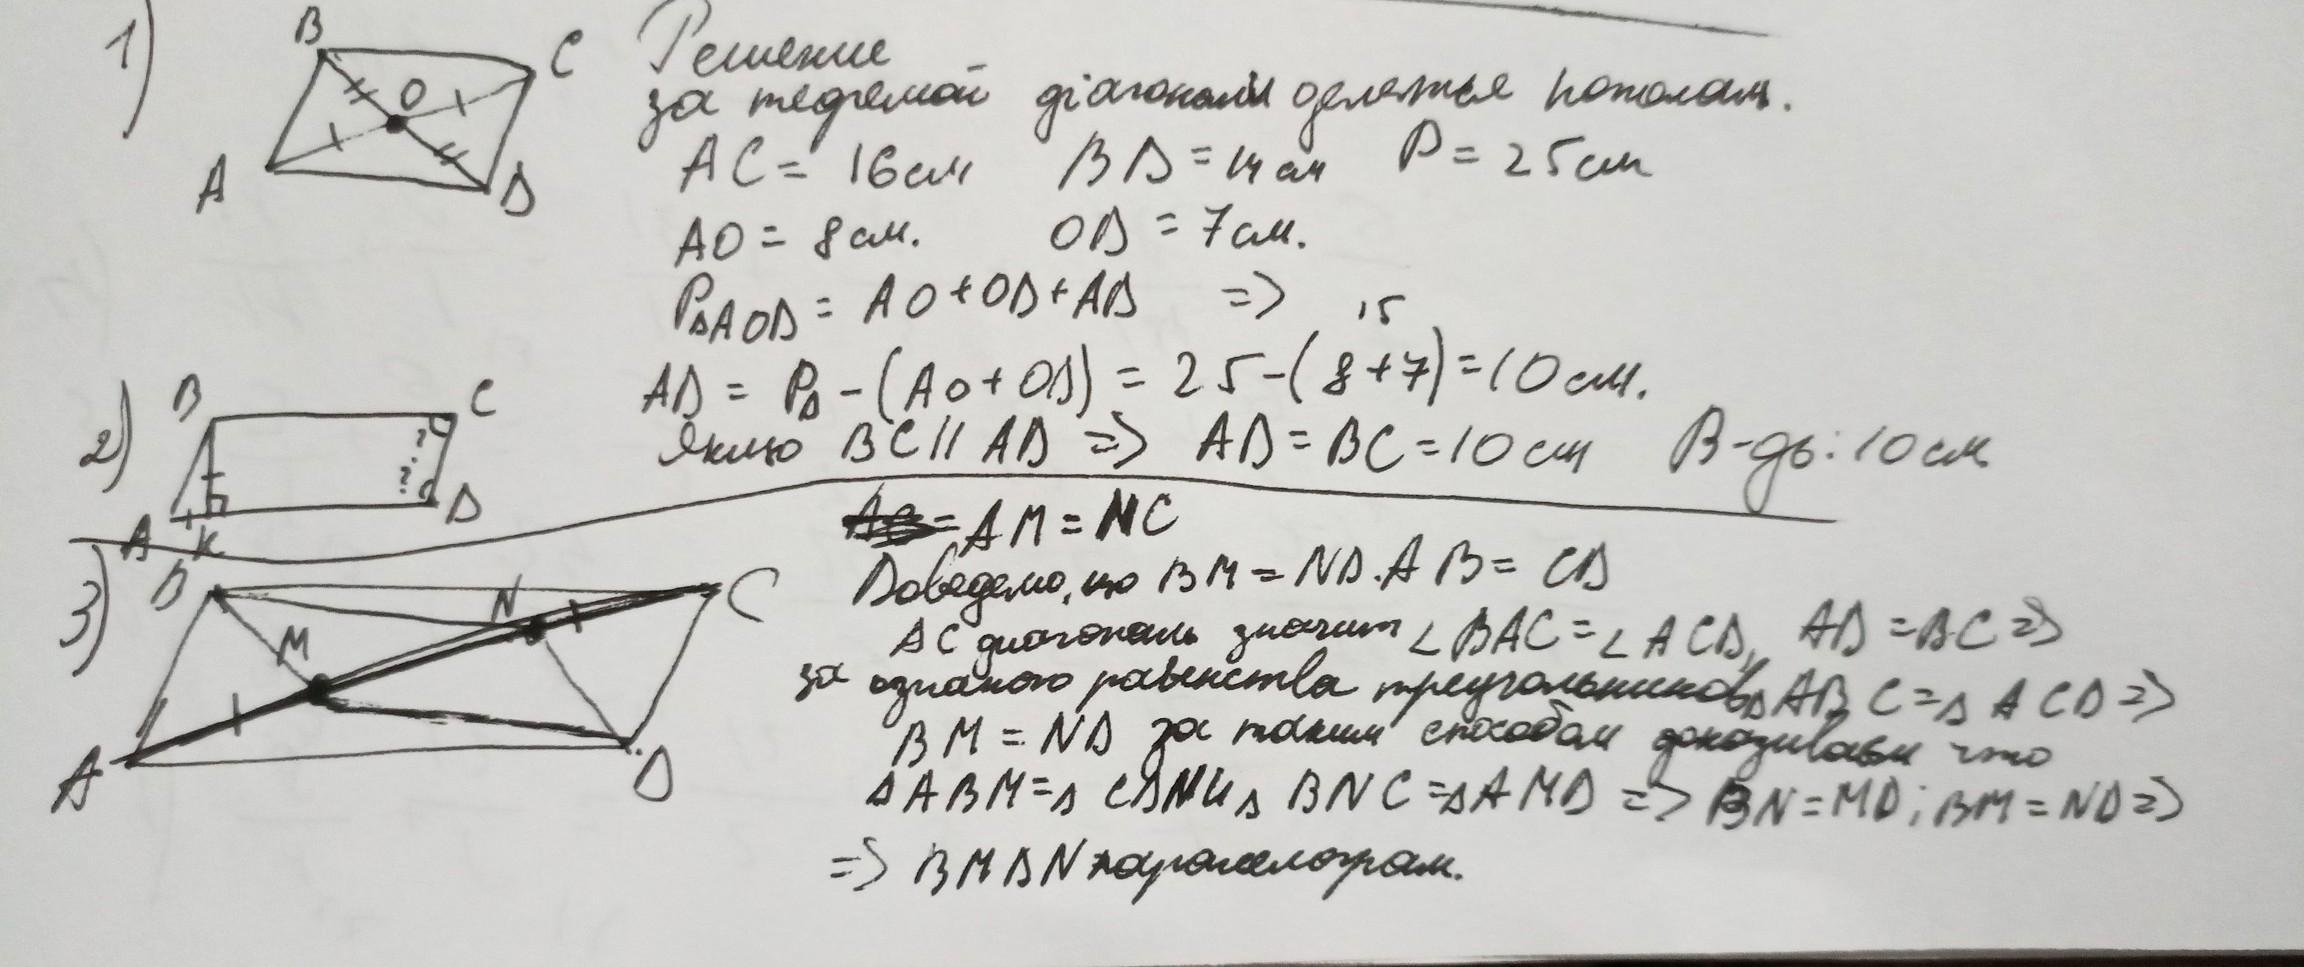 1)
B
C
O
A
D
Решение
за теоремой діагонали делетье пополам.
AC = 16см BD = 14см P = 25см
AO = 8см. OD = 7см.
P△AOD = AO + OD + AD =>
15
AD = P△ - (AO + OD) = 25 - (8 + 7) = 10 см.
Якщо BC || AD => AD = BC = 10 см В-дь: 10 см
2)
B
C
?
?
A
K
D
3)
B
N
C
M
A
D
= AM = NC
Доведемо, що BM = ND. AB = CD
AC диагональ значит ∠BAC = ∠ACD, AD = BC =>
за ознакого равенства треугольников △ABC = △ACD =>
BM = ND за таким способом доказиваем что
△ABM = △CDN и △BNC = △AMD => BN = MD; BM = ND =>
=> BMDN паралелограм.